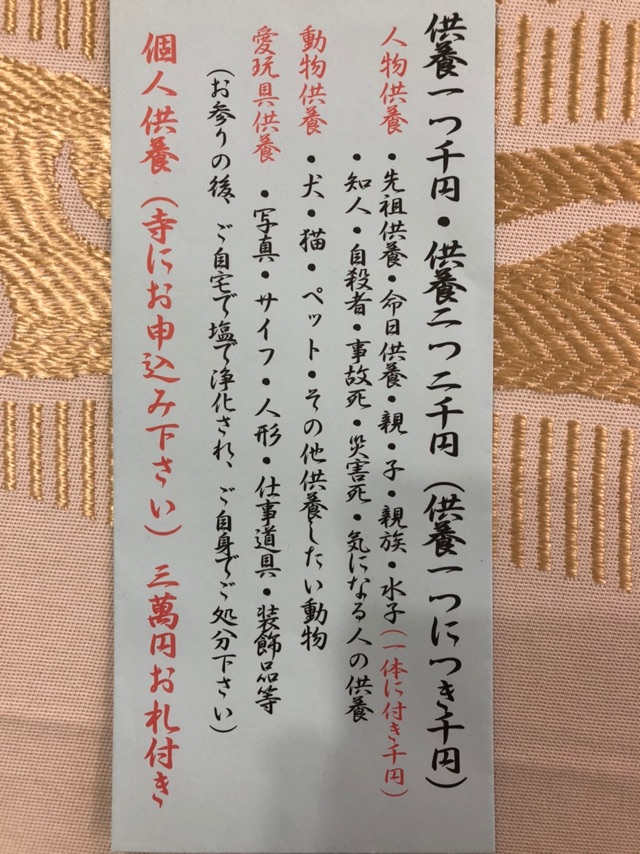 供養一つ千円・供養二つ二千円(供養一つにつき千円)
人物供養・先祖供養・命日供養・親・子・親族・水子(一体に付き千円)
・知人・自殺者・事故死・災害死・気になる人の供養
動物供養・犬・猫・ペット・その他供養したい動物
愛玩具供養・写真・サイフ・人形・仕事道具・装飾品等
(お参りの後、ご自宅で塩で浄化され、ご自身でご処分下さい)
個人供養(寺にお申込み下さい) 三萬円お札付き